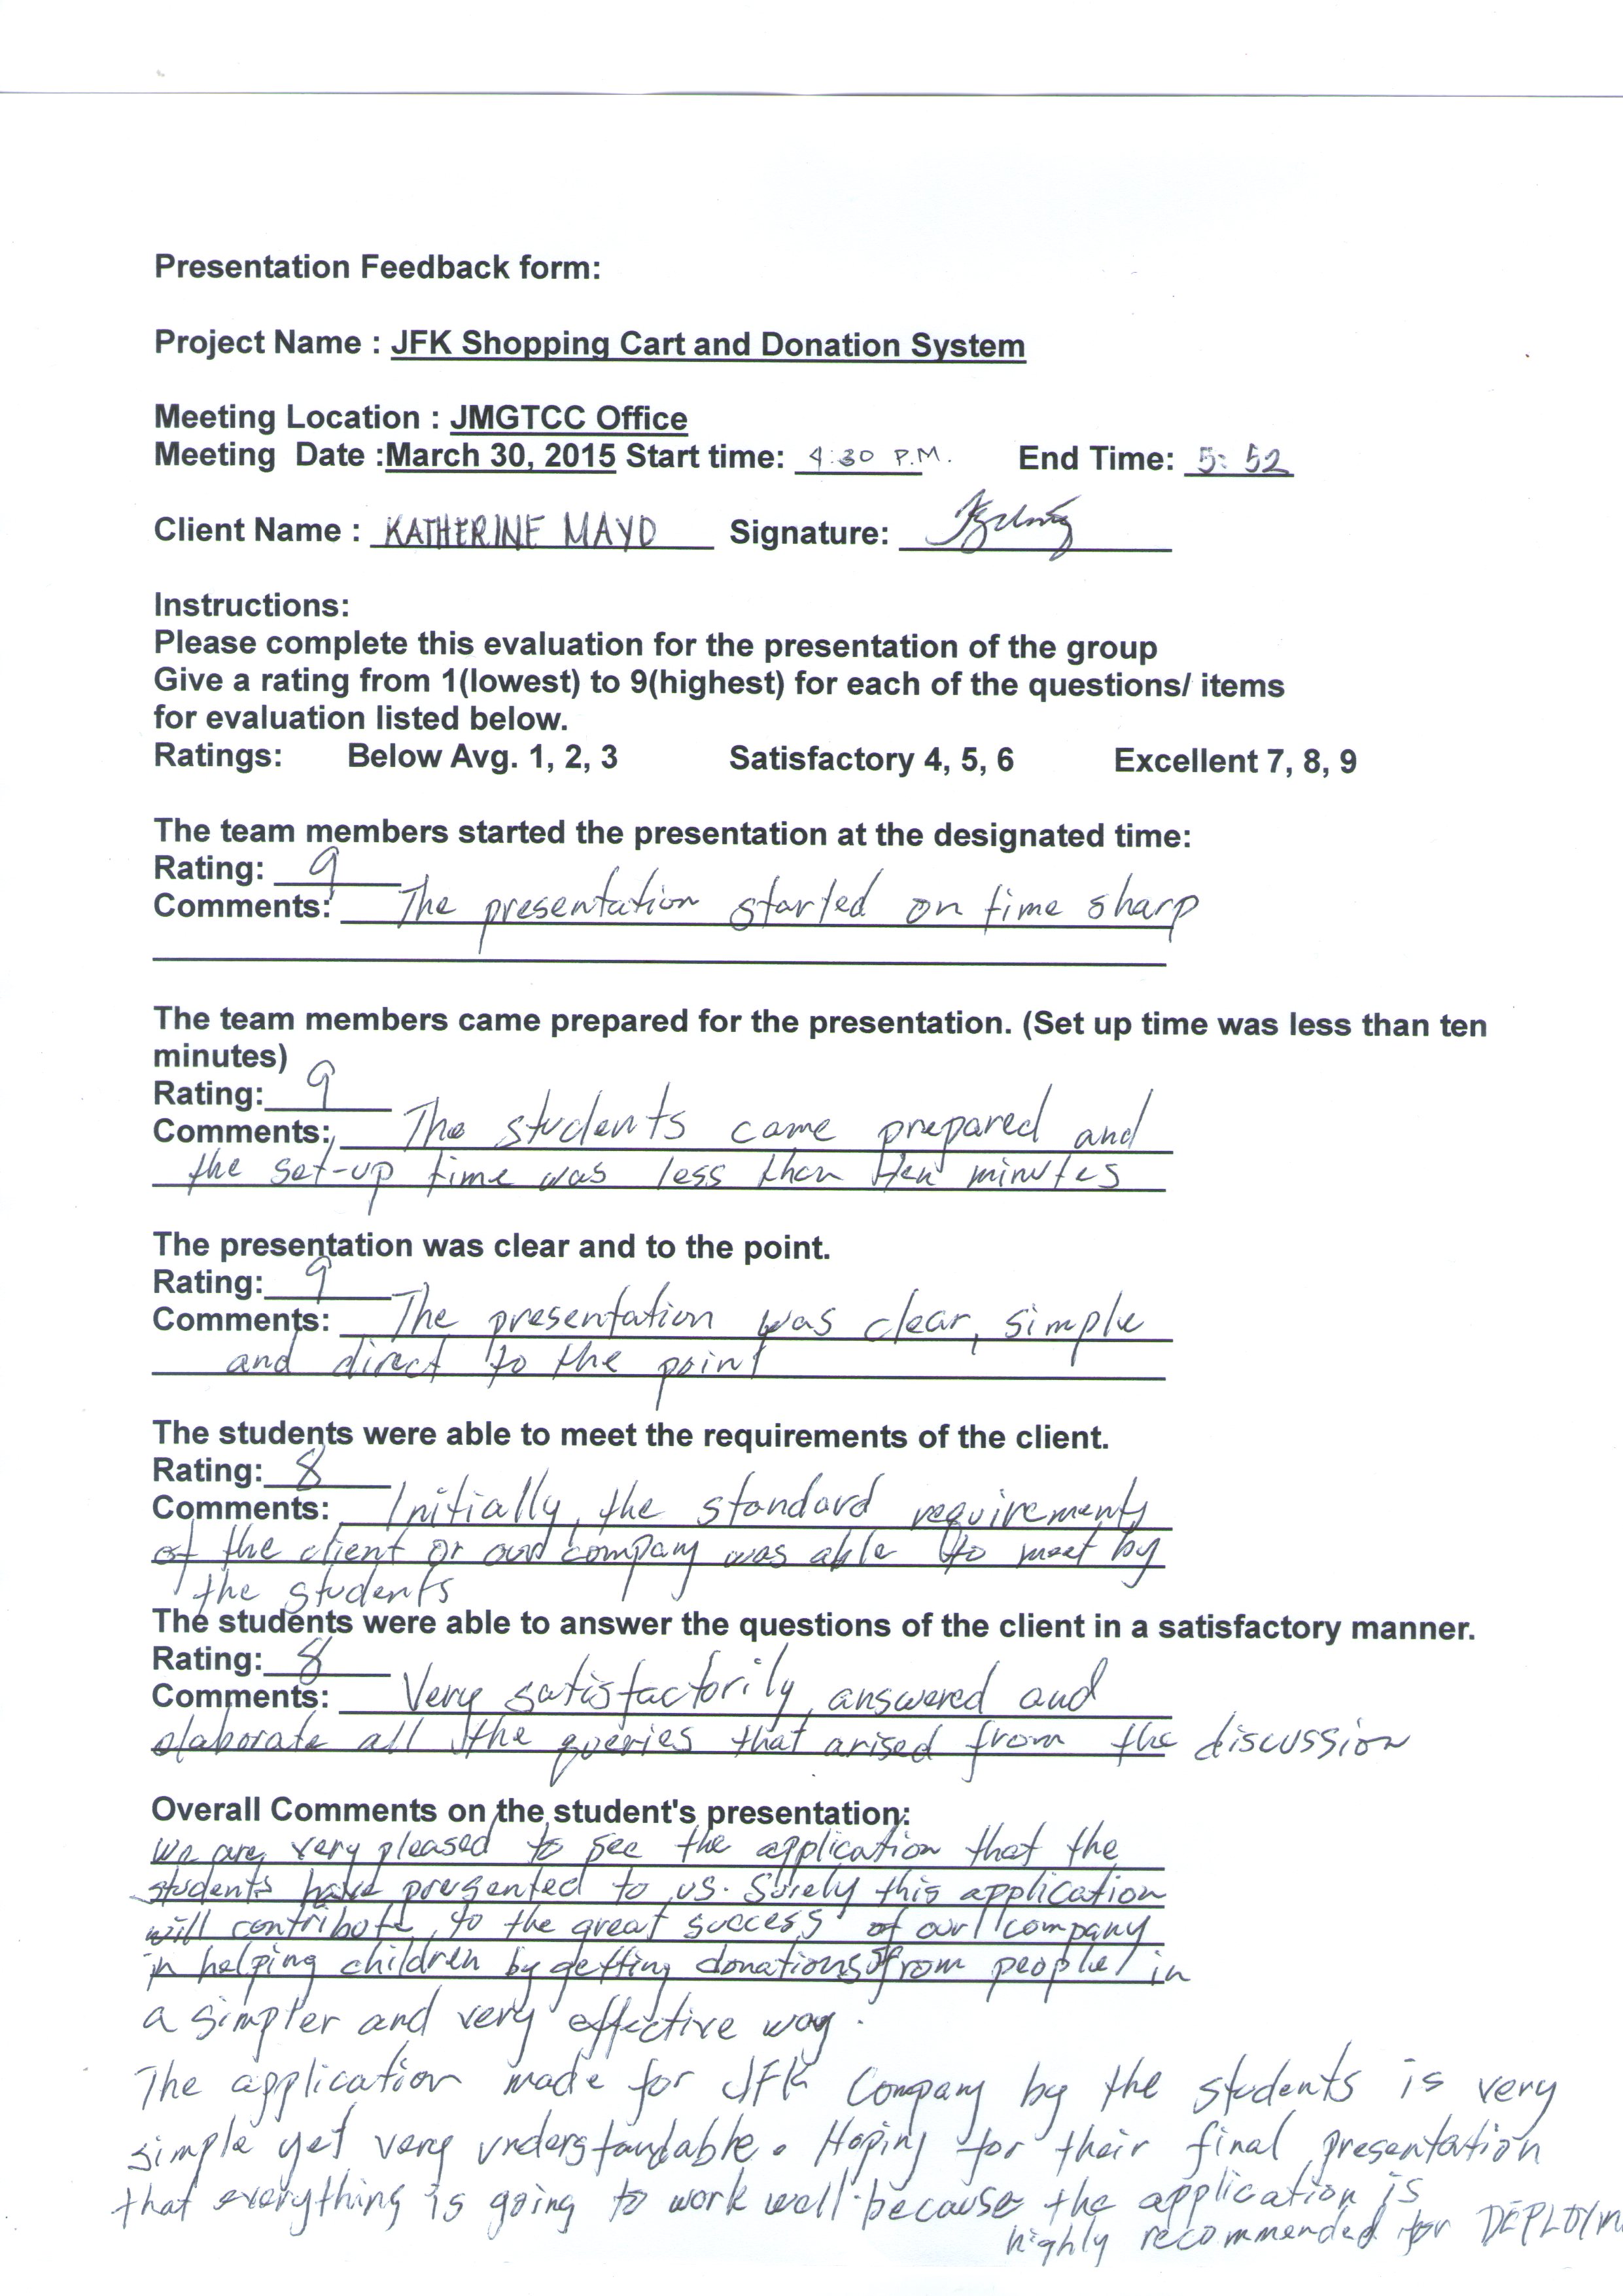 Presentation Feedback form:
Project Name : JFK Shopping Cart and Donation System
Meeting Location : JMGTCC Office
Meeting Date :March 30, 2015 Start time: 4:30 P.M. End Time: 5:52
Client Name : KATHERINE MAYO Signature:
Instructions:
Please complete this evaluation for the presentation of the group
Give a rating from 1(lowest) to 9(highest) for each of the questions/ items
for evaluation listed below.
Ratings: Below Avg. 1, 2, 3 Satisfactory 4, 5, 6 Excellent 7, 8, 9
The team members started the presentation at the designated time:
Rating: 9
Comments: The presentation started on time sharp
The team members came prepared for the presentation. (Set up time was less than ten
minutes)
Rating: 9
Comments: The students came prepared and
the set-up time was less than ten minutes
The presentation was clear and to the point.
Rating: 9
Comments: The presentation was clear, simple
and direct to the point
The students were able to meet the requirements of the client.
Rating: 8
Comments: Initially, the standard requirements
of the client or our company was able to meet by
the students
The students were able to answer the questions of the client in a satisfactory manner.
Rating: 8
Comments: Very satisfactorily answered and
elaborate all the queries that arised from the discussion
Overall Comments on the student's presentation:
We are very pleased to see the application that the
students have presented to us. Surely this application
will contribute to the great success of our company
in helping children by getting donations from people in
a simpler and very effective way.
The application made for JFK Company by the students is very
simple yet very understandable. Hoping for their final presentation
that everything is going to work well because the application is
highly recommended for DEPLOYM